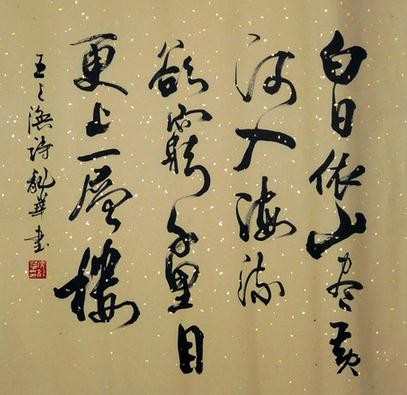 白日依山尽黄
河入海流
欲穷千里目
更上一层楼
王之涣诗龙华书